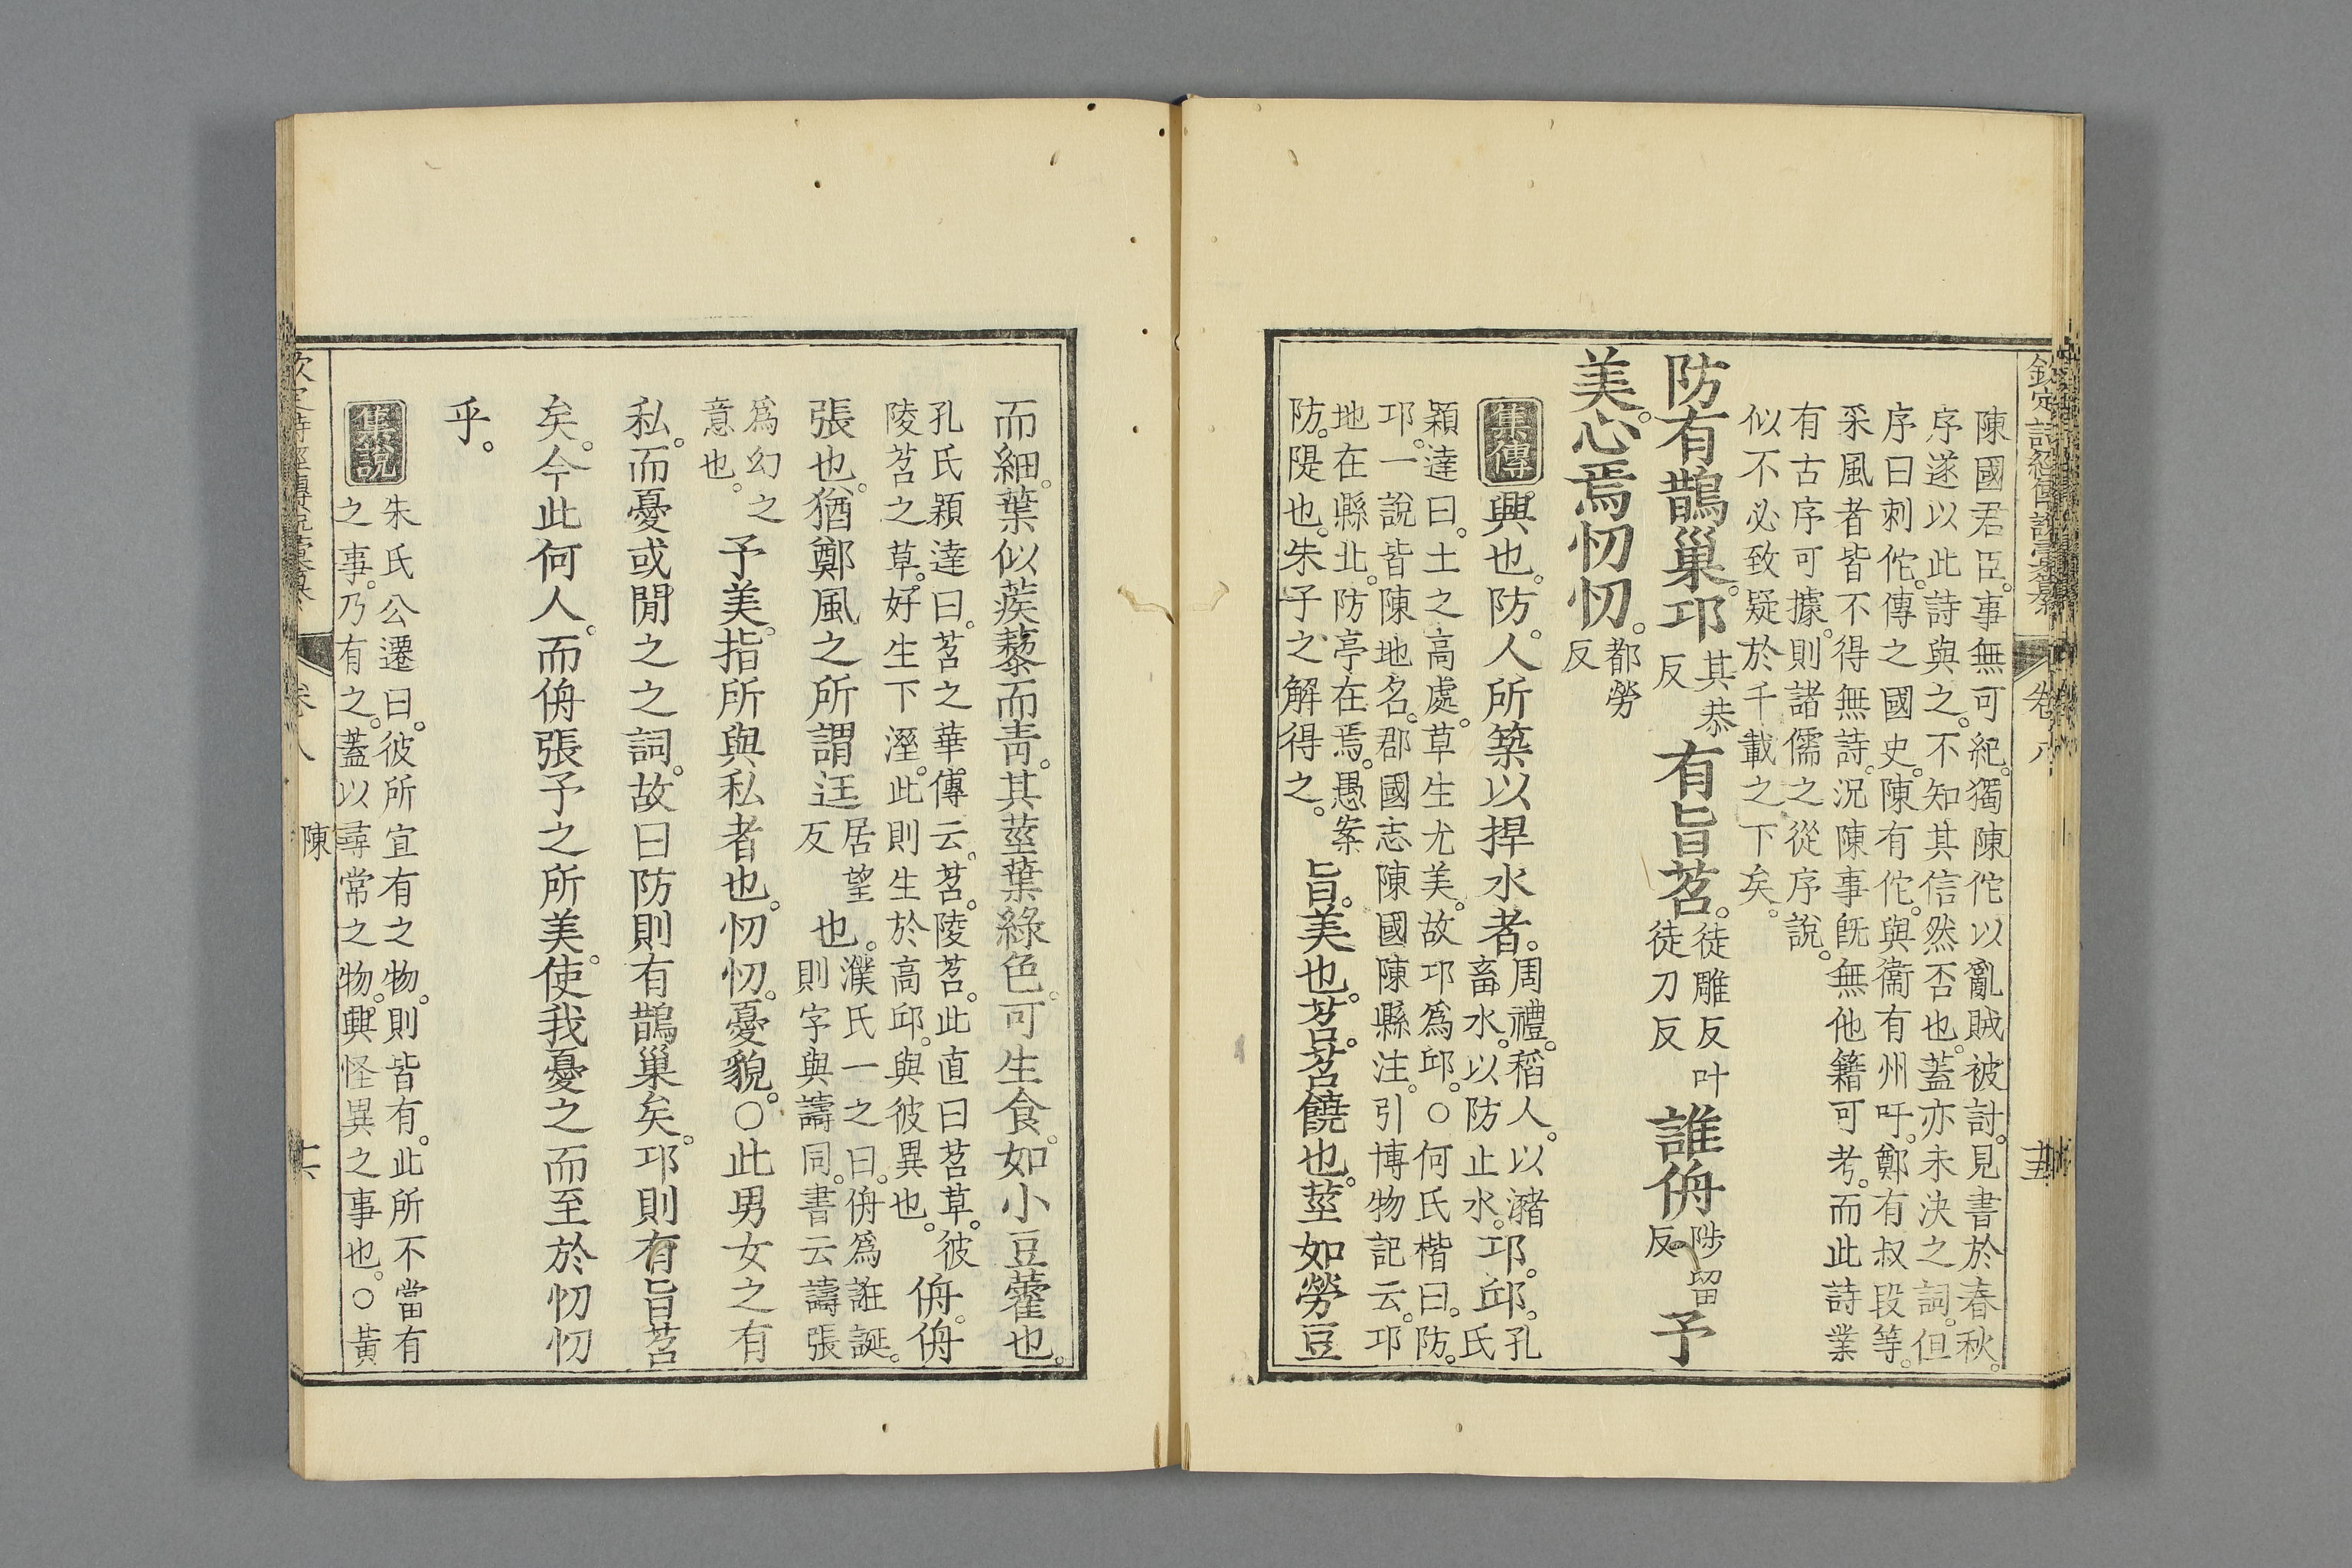 欽定詩經傳說彙纂 卷八
陳國君臣。事無可紀。獨陳佗以亂賊被討。見書於春秋。
序遂以此詩與之。不知其信然否也。蓋亦未決之詞。但
序曰刺佗。傳之國史。陳有佗。與衞有州吁。鄭有叔段等。
采風者皆不得無詩。況陳事旣無他籍可考。而此詩業
有古序可據。則諸儒之從序說。
似不必致疑於千載之下矣。
防有鵲巢。邛其恭反有旨苕。徒雕反叶徒刀反誰侜陟留反予
美。心焉忉忉。都勞反
集傳 興也。防。人所築以捍水者。周禮。稻人。以瀦畜水。以防止水。邛。邱。孔氏
穎達曰。土之高處。草生尤美。故邛爲邱。○何氏楷曰。防。
邛。一說皆陳地名。郡國志陳國陳縣注。引博物記云。邛
地在縣北。防亭在焉。愚案
防。隄也。朱子之解得之。旨。美也。苕。苕饒也。莖如勞豆
而細。葉似蒺藜而靑。其莖葉綠色。可生食。如小豆藿也。
孔氏穎達曰。苕之華傳云。苕。陵苕。此直曰苕草。彼
陵苕之草。好生下溼。此則生於高邱。與彼異也。侜。侜
張也。猶鄭風之所謂迋居望反也。濮氏一之曰。侜爲誑誕。則字與譸同。書云譸張
爲幻之意也。予美。指所與私者也。忉忉。憂貌。○此男女之有
私。而憂或閒之之詞。故曰防則有鵲巢矣。邛則有旨苕
矣。今此何人。而侜張予之所美。使我憂之而至於忉忉
乎。
集說 朱氏公遷曰。彼所宜有之物。則皆有。此所不當有
之事。乃有之。蓋以尋常之物。興怪異之事也。○黃
卷八 陳